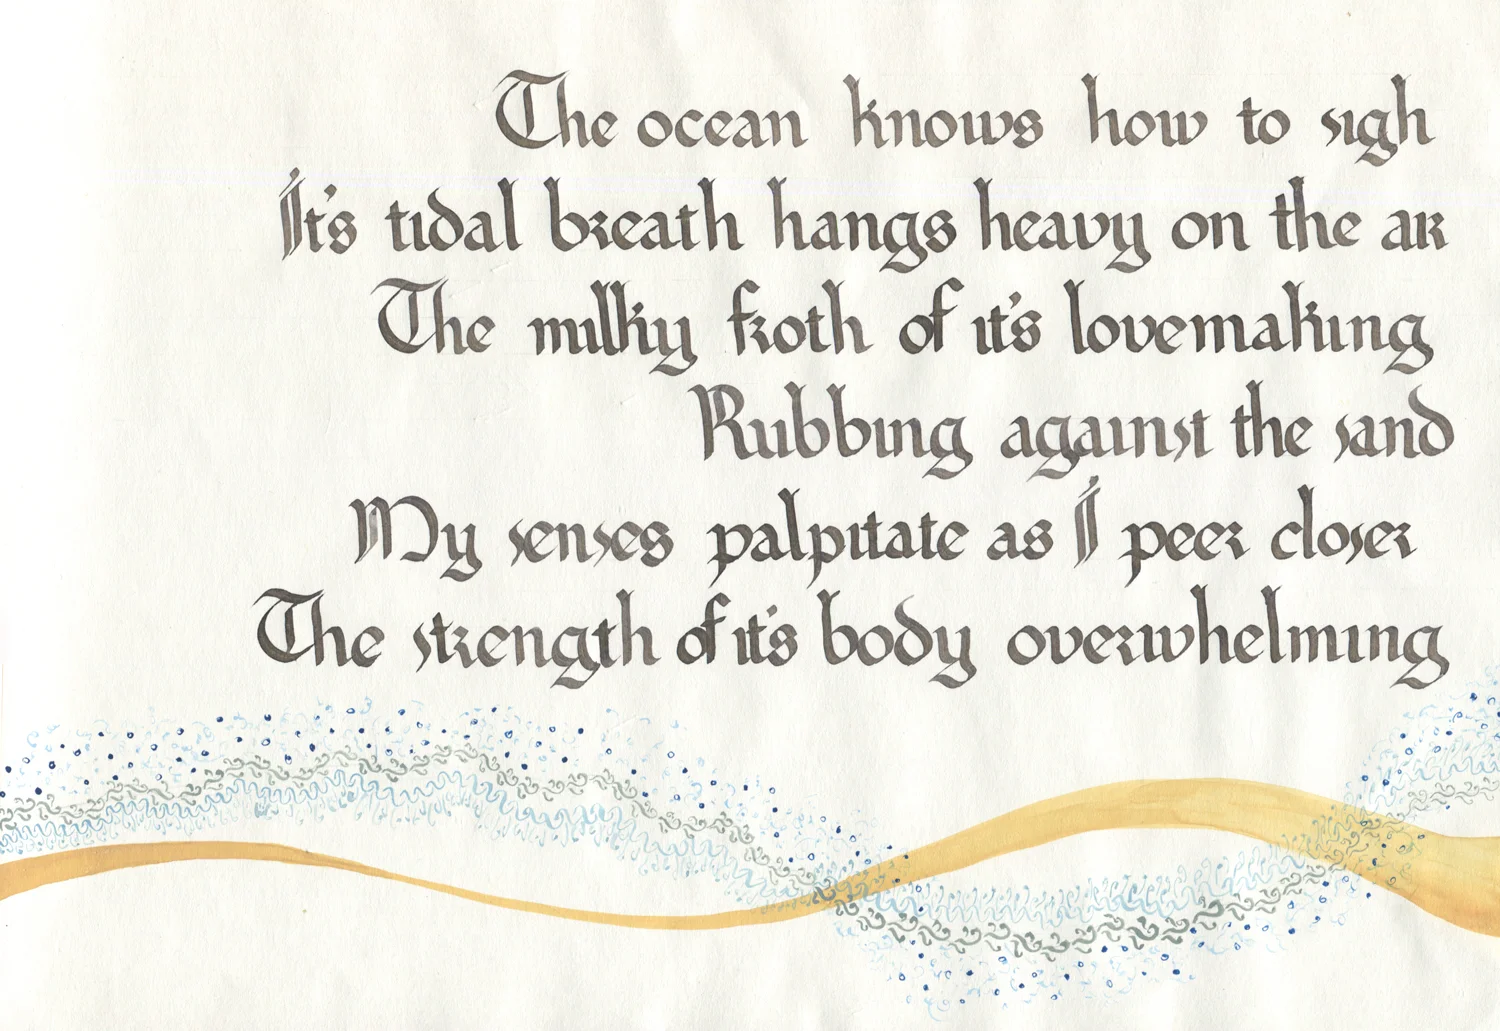 The ocean knows how to sigh
It's tidal breath hangs heavy on the air
The milky froth of it's lovemaking
Rubbing against the sand
My senses palpitate as I peer closer
The strength of it's body overwhelming